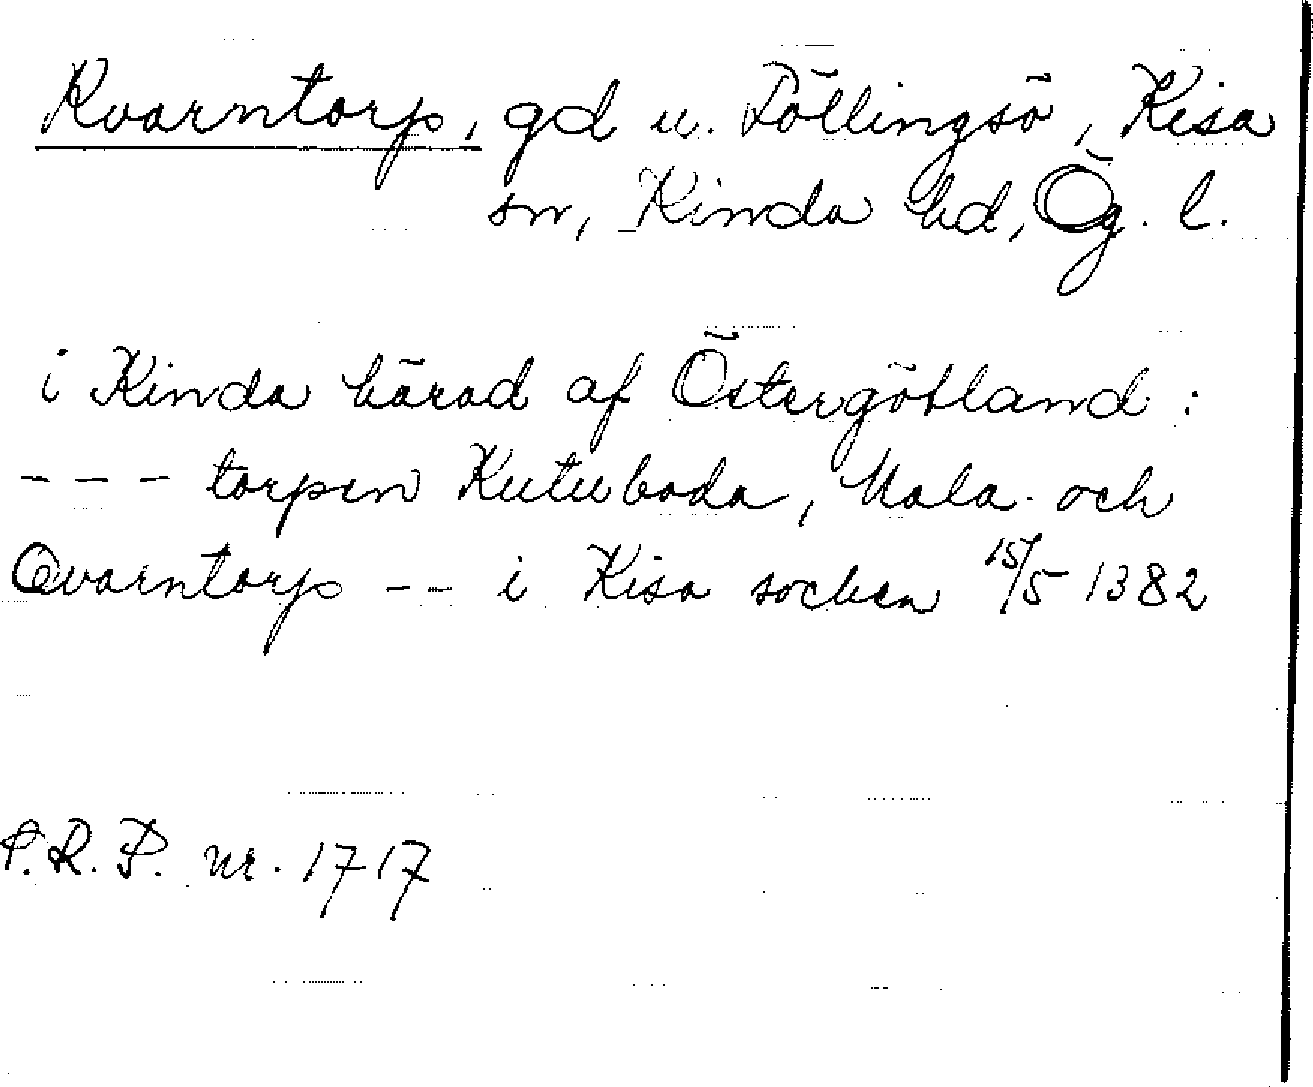 Kvarntorp, gd u. Föllingsö, Kisa
sn, Kinda hd, Ög. l.
i Kinda härad af Östergötland :
- - - torpen Kutuboda, Mala och
Qvarntorp - - i Kisa socken 15/5 1382
P.R.P. nr. 1717